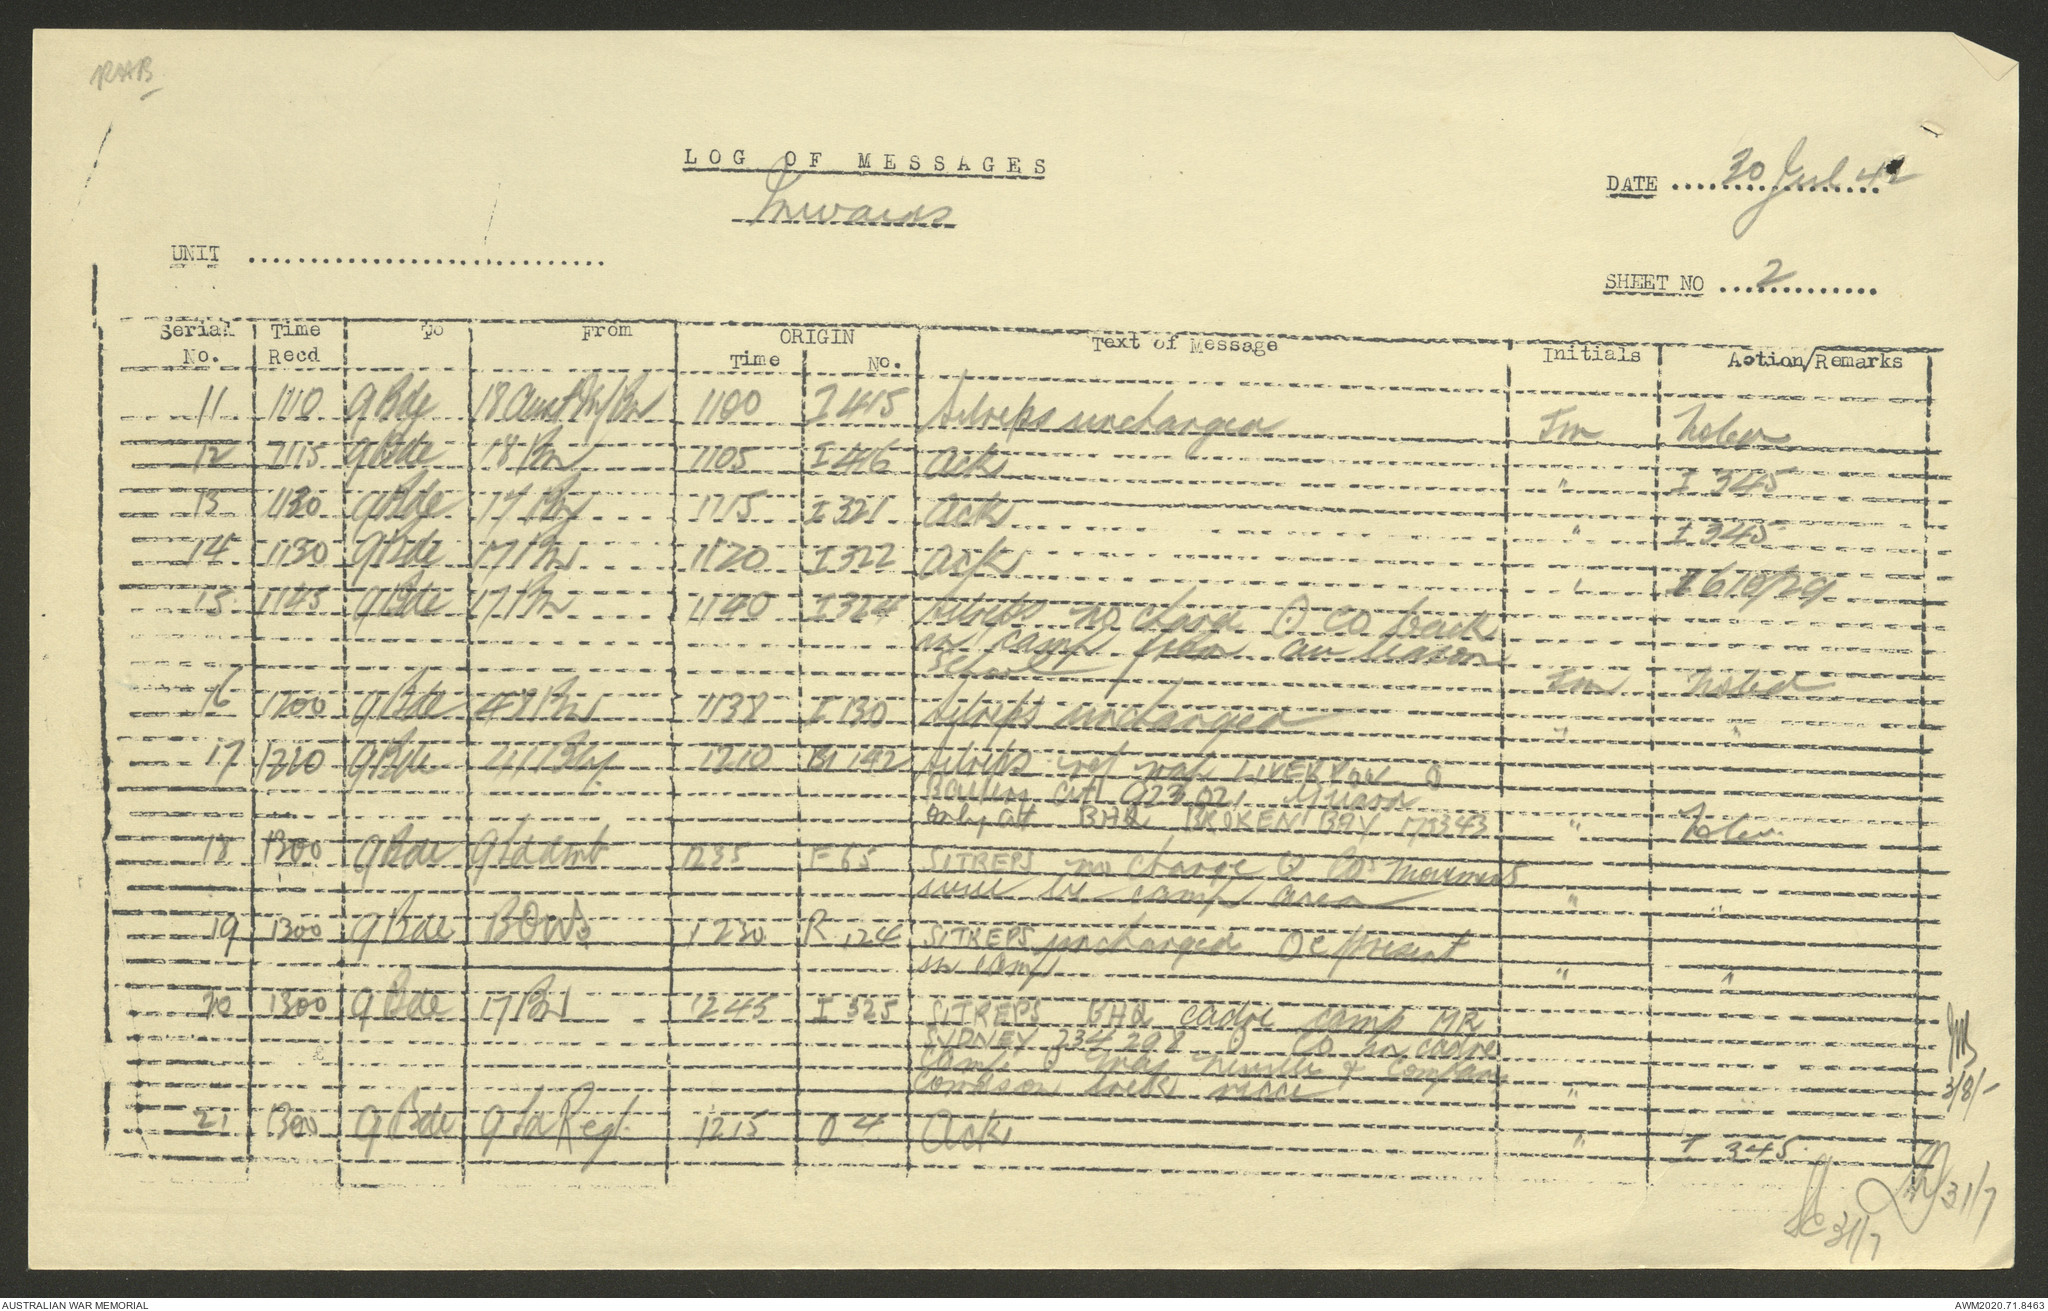 LOG OF MESSAGES
Inwards
DATE 30 Jul 42
UNIT
SHEET NO 2
Serial No. Time Recd To From ORIGIN Time No. Text of Message Initials Action/Remarks
11 1110 9 Bde 18 1100 I 415 Sitreps unchanged Im Noted
12 1115 9 Bde 18 Bn 1105 I 416 Ack " I 345
13 1130 9 Bde 17 Bn 1115 I 321 Ack " I 345
14 1130 9 Bde 17 Bn 1120 I 322 Ack " I 610/29
15 1145 9 Bde 17 Bn 1140 I 324 Sitreps no change O CO back
in camp from air liaison
School Im Noted
16 1200 9 Bde 1138 I 130 Sitreps unchanged " "
17 1210 9 Bde 1210 BM 142 Sitreps ref map LIVERPOOL O
023021
only at BHQ BROKEN BAY 173343 " Noted
18 1300 9 Bde 9 Fd Amb 1235 F 65 SITREPS no change O COs movements
will be camp area " "
19 1300 9 Bde BOWD 1230 R 124 SITREPS unchanged OC present
in camp " "
20 1300 9 Bde 17 Bn 1245 I 325 SITREPS BHQ cadre camp MR
SYDNEY 234298 O CO in cadre
camp O & Company
" "
21 1300 9 Bde 9 Fd Regt 1215 O 4 Ack " I 345
3/8/-
31/7
31/7
AUSTRALIAN WAR MEMORIAL
AWM2020.71.8463